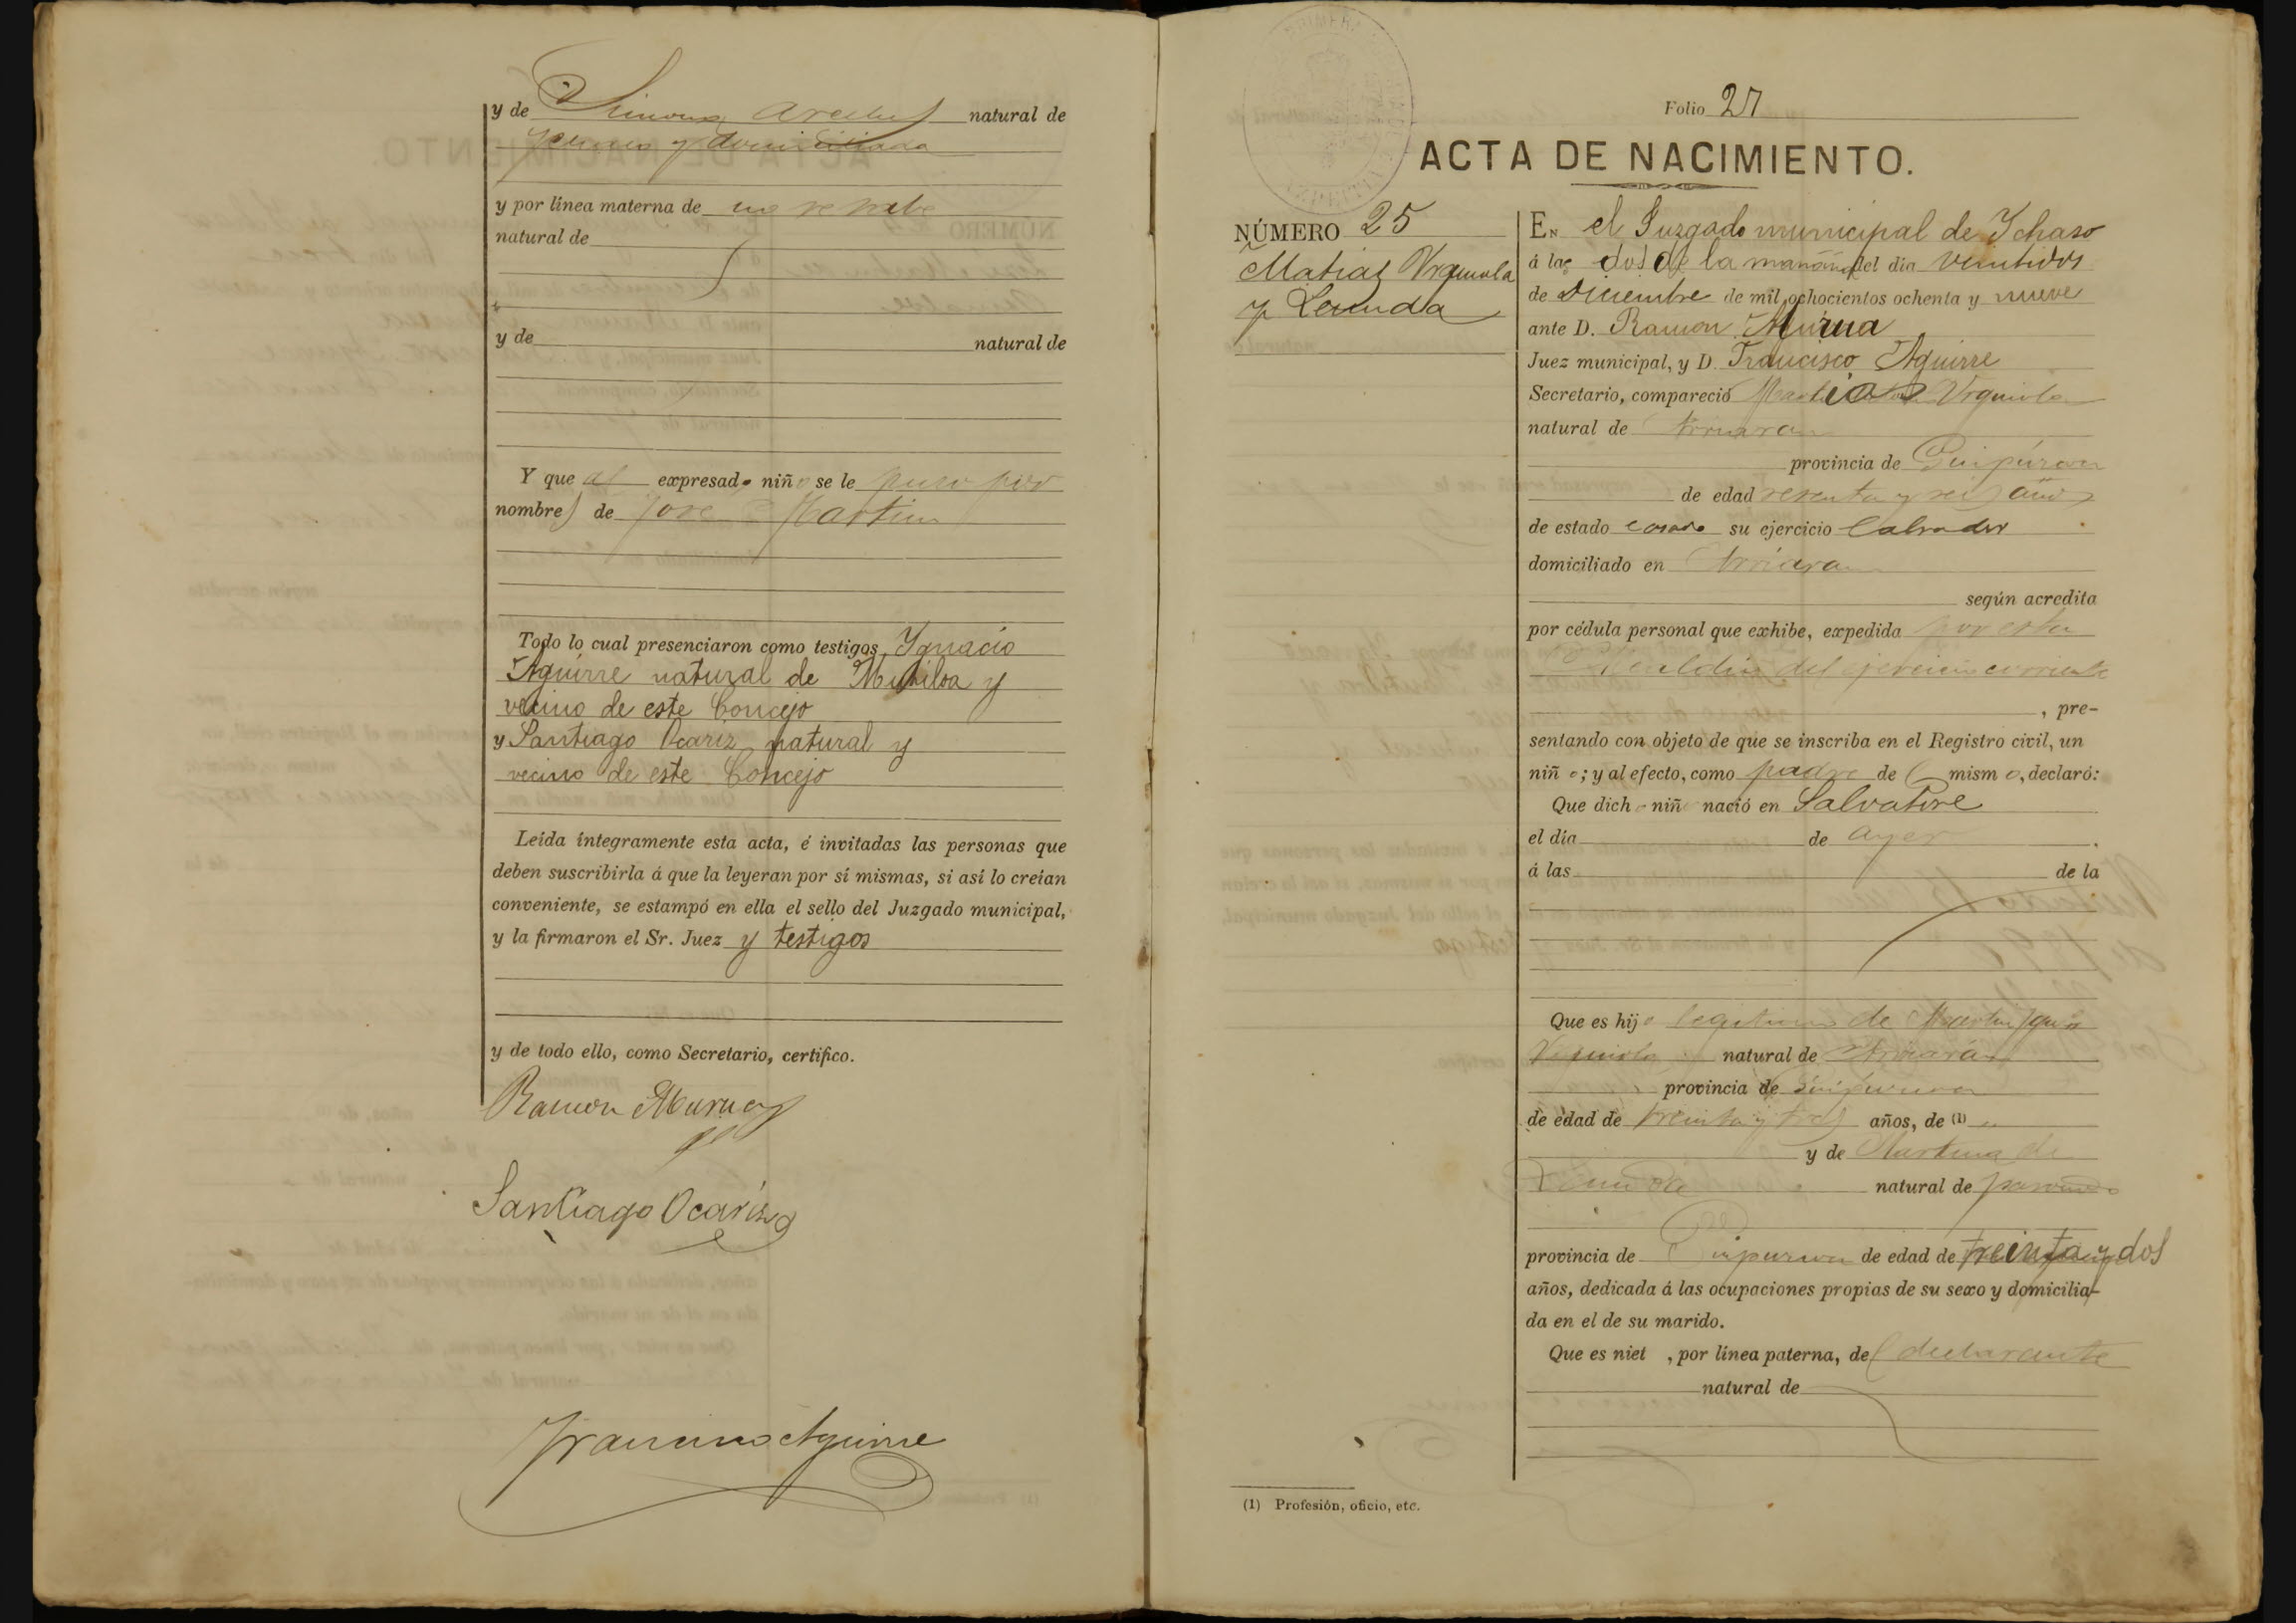 y de Simona natural de
y domiciliada
y por línea materna de no se sabe
natural de
y de natural de
Y que al expresado niño se le puso por
nombres de José Martin
Todo lo cual presenciaron como testigos Ygnacio
Aguirre natural de Mutiloa y
vecino de este Concejo
y Santiago Ocariz natural y
vecino de este Concejo
Leída íntegramente esta acta, é invitadas las personas que
deben suscribirla á que la leyeran por sí mismas, si así lo creían
conveniente, se estampó en ella el sello del Juzgado municipal,
y la firmaron el Sr. Juez y testigos
y de todo ello, como Secretario, certifico.
Ramon Murua
Santiago Ocariz
Francisco Aguirre
Folio 27
ACTA DE NACIMIENTO.
NÚMERO 25
Matias Urquiola
y
EN el Juzgado municipal de Ichaso
á las dos de la mañana del día veintidos
de Diciembre de mil ochocientos ochenta y nueve
ante D. Ramon Murua
Juez municipal, y D. Francisco Aguirre
Secretario, compareció Urquiola
natural de Arriaran
provincia de Guipúzcoa
de edad sesenta y seis años
de estado casado su ejercicio labrador
domiciliado en Arriaran
según acredita
por cédula personal que exhibe, expedida por esta
Alcaldía del ejercicio corriente
, pre-
sentando con objeto de que se inscriba en el Registro civil, un
niño; y al efecto, como padre de l mismo, declaró:
Que dicho niñ nació en Salvatore
el día de ayer
á las de la
Que es hijo legitimo de Martin
Urquiola natural de Arriarán
provincia de Guipuzcoa
de edad de treinta y tres años, de (1) "
y de Martina de
natural de
provincia de Guipuzcoa de edad de treinta y dos
años, dedicada á las ocupaciones propias de su sexo y domicilia-
da en el de su marido.
Que es niet , por línea paterna, del declarante
natural de
(1) Profesión, oficio, etc.